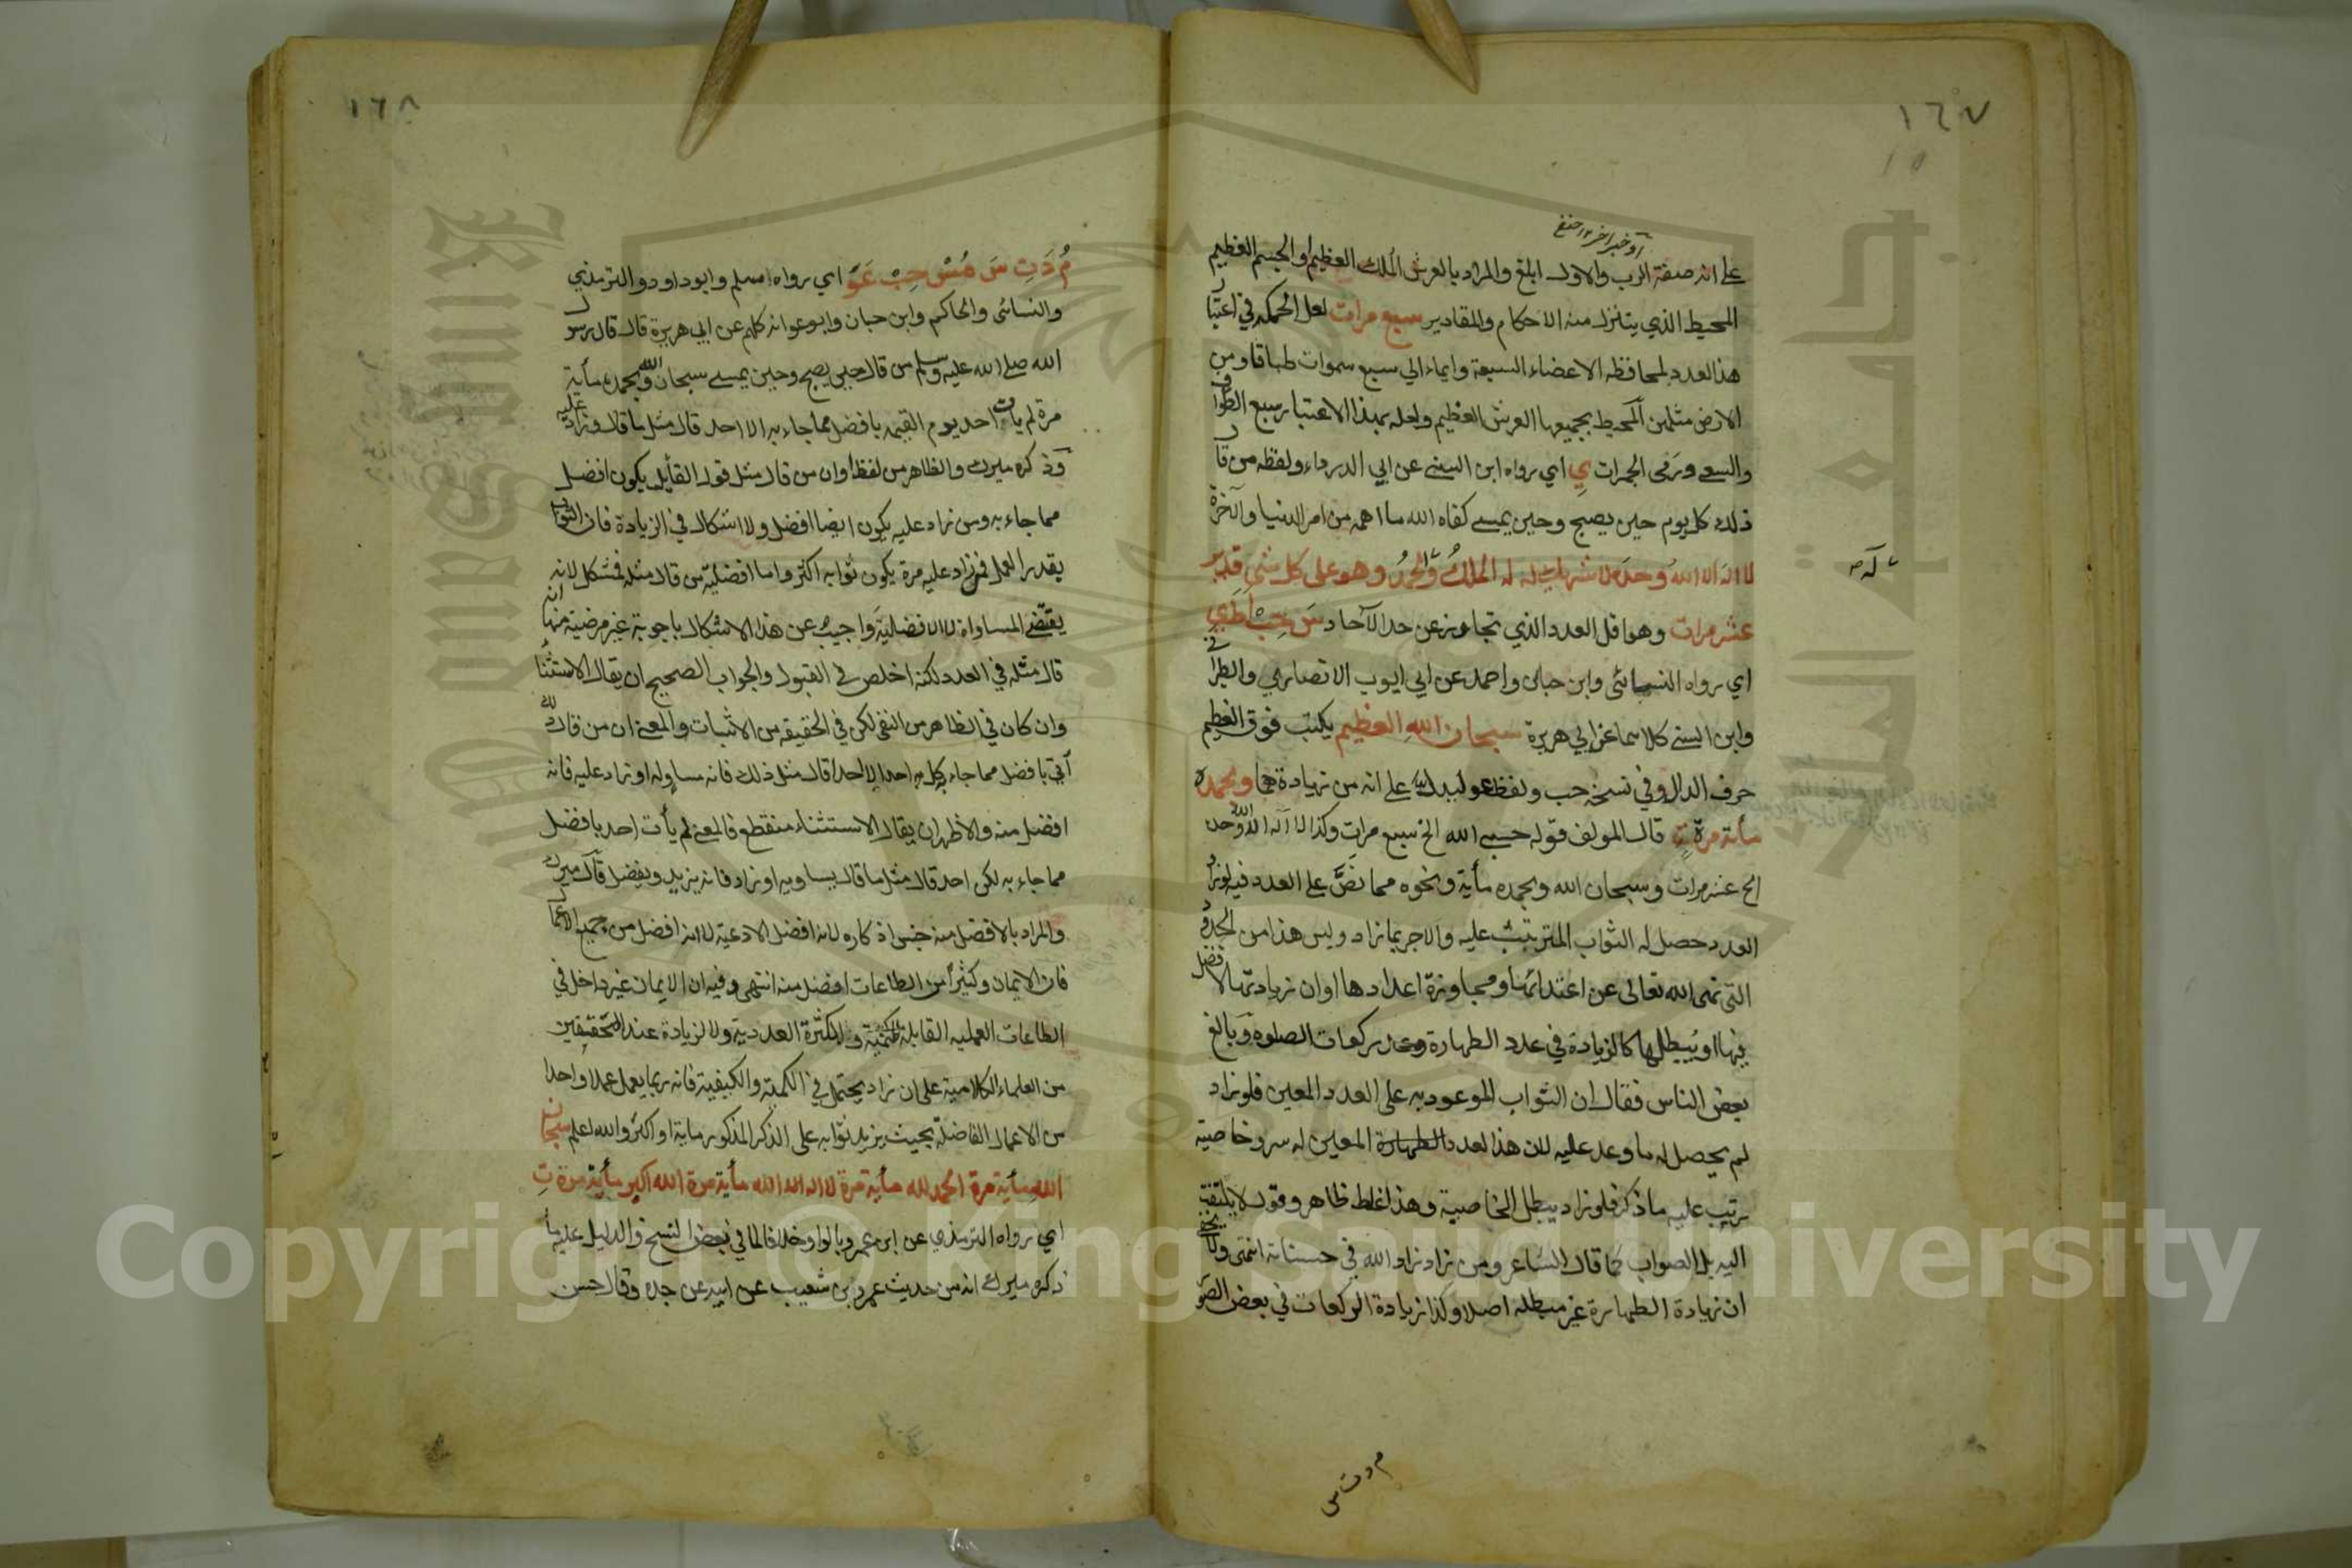 ١٦٧
على انه صفة الرب والاول ابلغ والمراد بالعرش الملك العظيم او الجسم العظيم
المحيط الذي يتنزل منه الاحكام والمقادير سبع مرات لعل الحكمة في اعتبار
هذا العدد لمحافظه الاعضاء السبعة وايماء الي سبع سموات طباقا ومن
الارض مثلهن المحيط بجميعها العرش العظيم ولعله بهذا الاعتبار سبع الطواف
والسعي ورمى الجمرات ي اي رواه ابن السني عن ابي الدرداء ولفظه من قال
ذلك كل يوم حين يصبح وحين يمسي كفاه الله ما اهمه من امر الدنيا والآخرة
لا اله الا الله وحده لا شريك له له الملك وله الحمد وهو على كل شي قدير
عشر مرات وهو اقل العدد الذي تجاوز عن حد الآحاد س حب ا ط ي
اي رواه النسائى وابن حبان واحمد عن ابي ايوب الانصاري والطبراني
وابن السني كلاهما عن ابي هريرة سبحان الله العظيم يكتب فوق العظيم
حرف الدال وفي نسخة حب ولفظ عو ليدل على انه من زيادة هما وبحمده
مأية مرة ت قال المولف قوله حسبي الله الخ سبع مرات وكذا لا اله الا الله وحده
الخ عشر مرات وسبحان الله وبحمده مأية ونحوه مما نص على العدد فيه لو زاد
العدد حصل له الثواب المترتب عليه والاجر بما زاد وليس هذا من الحدود
التى نهى الله تعالى عن اعتدائها ومجاوزة اعدادها او ان زيادتها لا فضل
فيها او يبطلها كالزيادة في عدد الطهارة وعدد ركعات الصلوة وبالغ
بعض الناس فقال ان الثواب الموعود به على العدد المعين فلو زاد
لم يحصل له ما وعد عليه لان هذا العدد المعين له سر وخاصية
رتب عليه ما ذكر فلو زاد يبطل الخاصية وهذا غلط ظاهر وقول لا يلتفت
اليه بل الصواب كما قال الشاعر ومن زاد زاد الله في حسناته انتهى ولا يخفى
ان زيادة الطهارة غير مبطله اصلا وكذا زيادة الركعات في بعض الصور
م د ت س
١٦٨
م د ت س مس حب عو اي رواه مسلم وابوداود والترمذي
والنسائى والحاكم وابن حبان وابوعوانه كلهم عن ابي هريرة قال قال رسول
الله صلى الله عليه وسلم من قال حين يصبح وحين يمسي سبحان الله وبحمده مأية
مرة لم يات احد يوم القيمه بافضل مما جاء به الا احد قال مثل ما قال وزاد عليه
ذكره ميرك والظاهر من لفظ او ان من قال مثل قول القايل يكون افضل
مما جاء به ومن زاد عليه يكون ايضا افضل ولا اشكال في الزيادة فان الثواب
بقدر العمل فمن زاد عليه مرة يكون ثوابه اكثر واما افضليه من قال مثله فمشكل لانه
يقتضي المساواة لا الافضلية واجيب عن هذا الاشكال باجوبة غير مرضية منها انه
قال مثله في العدد لكنه اخلص في القبول والجواب الصحيح ان يقال الاستثناء
وان كان في الظاهر من النفي لكن في الحقيقه من الاثبات والمعنى ان من قال ذلك
أتي بافضل مما جاء كل به احد الا احدا قال مثل ذلك فانه مساو له او زاد عليه فانه
افضل منه والاظهر ان يقال الاستثناء منقطع فالمعنى لم يأت احد بافضل
مما جاء به لكن احد قال مثل ما قال يساويه او زاد فانه يزيد ويفضل قال ميرك
والمراد بالافضل منه جنس اذكاره لانه افضل الادعية لا انه افضل من جميع الاعمال
فان الايمان وكثيرا من الطاعات افضل منه انتهى وفيه ان الايمان غير داخل في
الطاعات العمليه القابلة للكمية وللكثرة العددية ولا لزيادة عند المحققين
من العلماء الكلامية على ان زاد يحتمل في الكمية والكيفية فانه ربما يعمل عملا واحدا
من الاعمال الفاضلة بحيث يزيد ثوابه على الذكر المذكور ماية او اكثر والله اعلم سبحان
الله مأية مرة الحمد لله مأية مرة لا اله الا الله مأية مرة الله اكبر مأية مرة ت
اي رواه الترمذي عن ابن عمرو بالواو خلافا لما في بعض النسخ والدليل عليه ما
ذكره ميرك انه من حديث عمرو بن شعيب عن ابيه عن جده وقال حسن
Copyright © King Saud University
King Saud University
1957